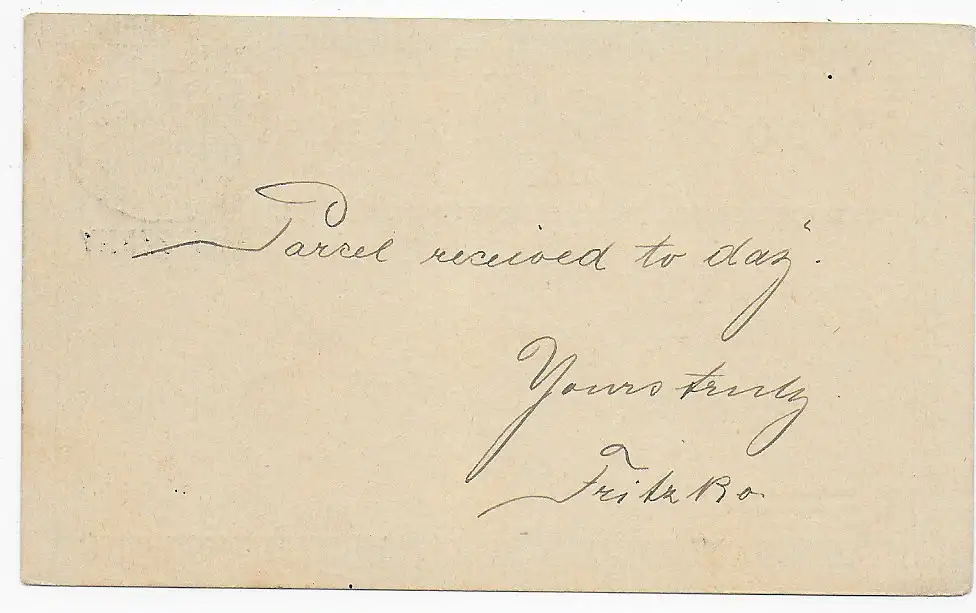 Parcel received to day".
Yours truly
Fritz Ro.